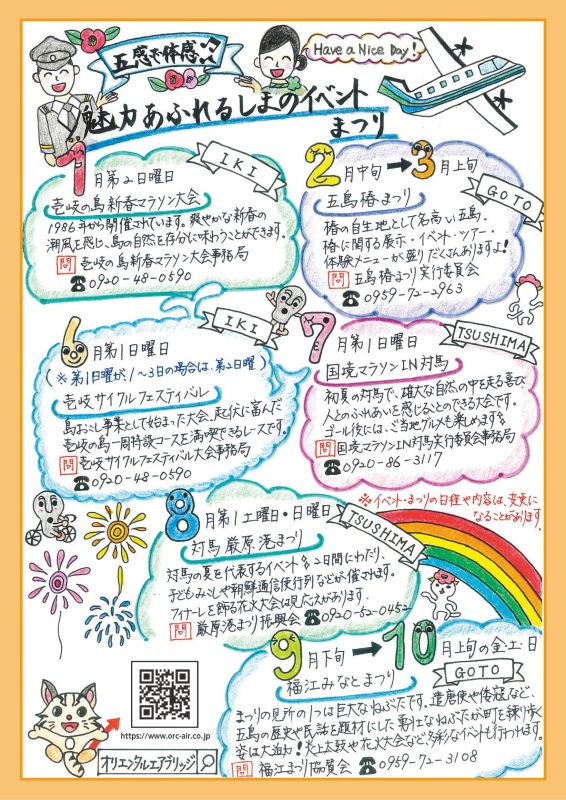 五感で体感♪
Have a Nice Day!
魅力あふれるしまのイベント
まつり
1月第2日曜日
IKI
壱岐の島新春マラソン大会
1986年から開催されています。爽やかな新春の
潮風を感じ、島の自然を存分に味わうことができます。
問 壱岐の島新春マラソン大会事務局
☎0920-48-0590
2月中旬→3月上旬
GOTO
五島椿まつり
椿の自生地として名高い五島。
椿に関する展示・イベント・ツアー・
体験メニューが盛りだくさんありますよ!
問 五島椿まつり実行委員会
☎0959-72-2963
6月第1日曜日
IKI
(※第1日曜が、1~3日の場合は、第2日曜)
壱岐サイクルフェスティバル
島おこし事業として始まった大会。起伏に富んだ
壱岐の島一周特設コースを満喫できるレースです。
問 壱岐サイクルフェスティバル大会事務局
☎0920-48-0590
7月第1日曜日
TSUSHIMA
国境マラソンIN対馬
初夏の対馬で、雄大な自然の中を走る喜び
人とのふれあいを感じることのできる大会です。
ゴール後には、ご当地グルメも楽しめます。
問 国境マラソンIN対馬実行委員会事務局
☎0920-86-3117
※イベント・まつりの日程や内容は、変更に
なることがあります。
8月第1土曜日・日曜日
TSUSHIMA
対馬厳原港まつり
対馬の夏を代表するイベント。2日間にわたり、
子どもみこしや朝鮮通信使行列などが催されます。
フィナーレを飾る花火大会は見ごたえがあります。
問 厳原港まつり振興会 ☎0920-52-0452
9月下旬→10月上旬の金土日
GOTO
福江みなとまつり
まつりの見所の1つは巨大なねぶたです。遣唐使や倭寇など、
五島の歴史や民話を題材にした勇壮なねぶたが町を練り歩く
姿は大迫力!炎上太鼓や花火大会など多彩なイベントも行われます。
問 福江まつり協賛会 ☎0959-72-3108
https://www.orc-air.co.jp
オリエンタルエアブリッジ